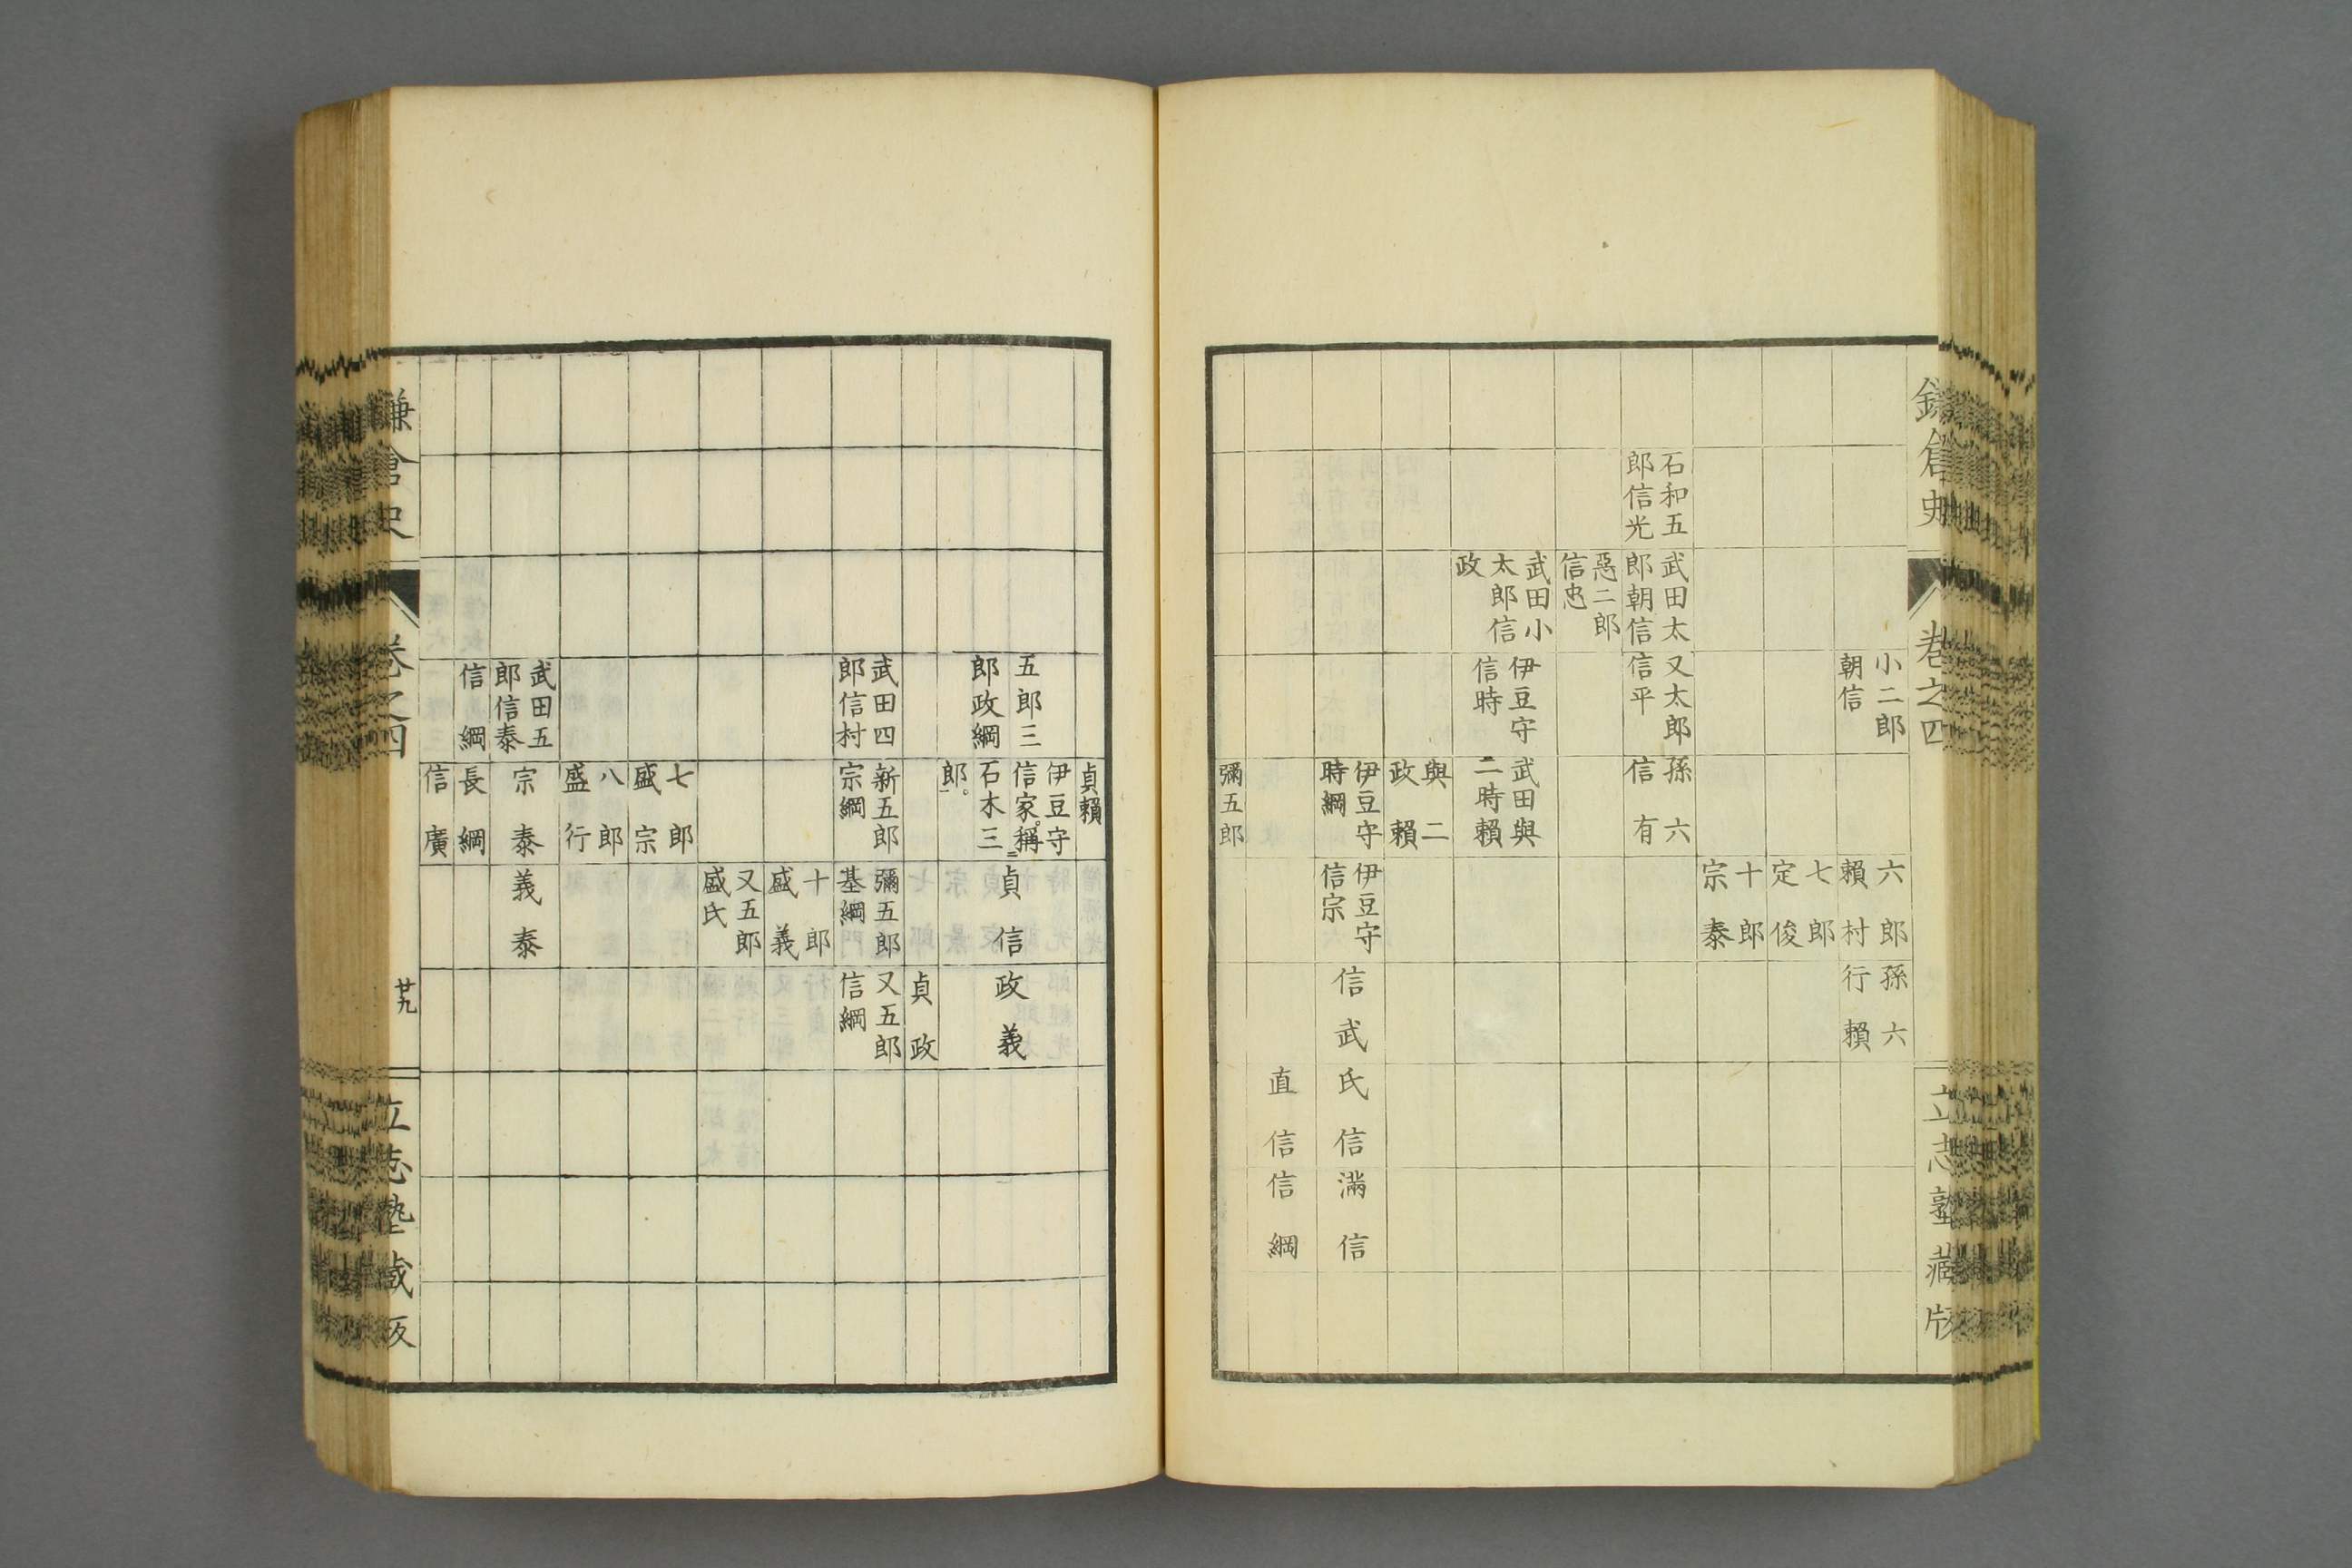 鎌倉史
卷之四
立志塾藏版
小二郎
朝信
六郎
賴村
孫六
行賴
七郎
定俊
十郎
宗泰
石和五
郎信光
武田太
郎朝信
又太郎
信平
孫六
信有
惡二郎
信忠
武田小
太郎信
政
伊豆守
信時
武田與
二時賴
與二
政賴
伊豆守
時綱
伊豆守
信宗
信武
氏信
滿信
直信
信綱
彌五郎
貞賴
五郎三
郎政綱
伊豆守
信家。稱
石木三
郎。
貞信
政義
貞政
武田四
郎信村
新五郎
宗綱
彌五郎
基綱
又五郎
信綱
十郎
盛義
又五郎
盛氏
七郎
盛宗
八郎
盛行
武田五
郎信泰
宗泰
義泰
信綱
長綱
信廣
鎌倉史
卷之四
廿九
立志塾藏版